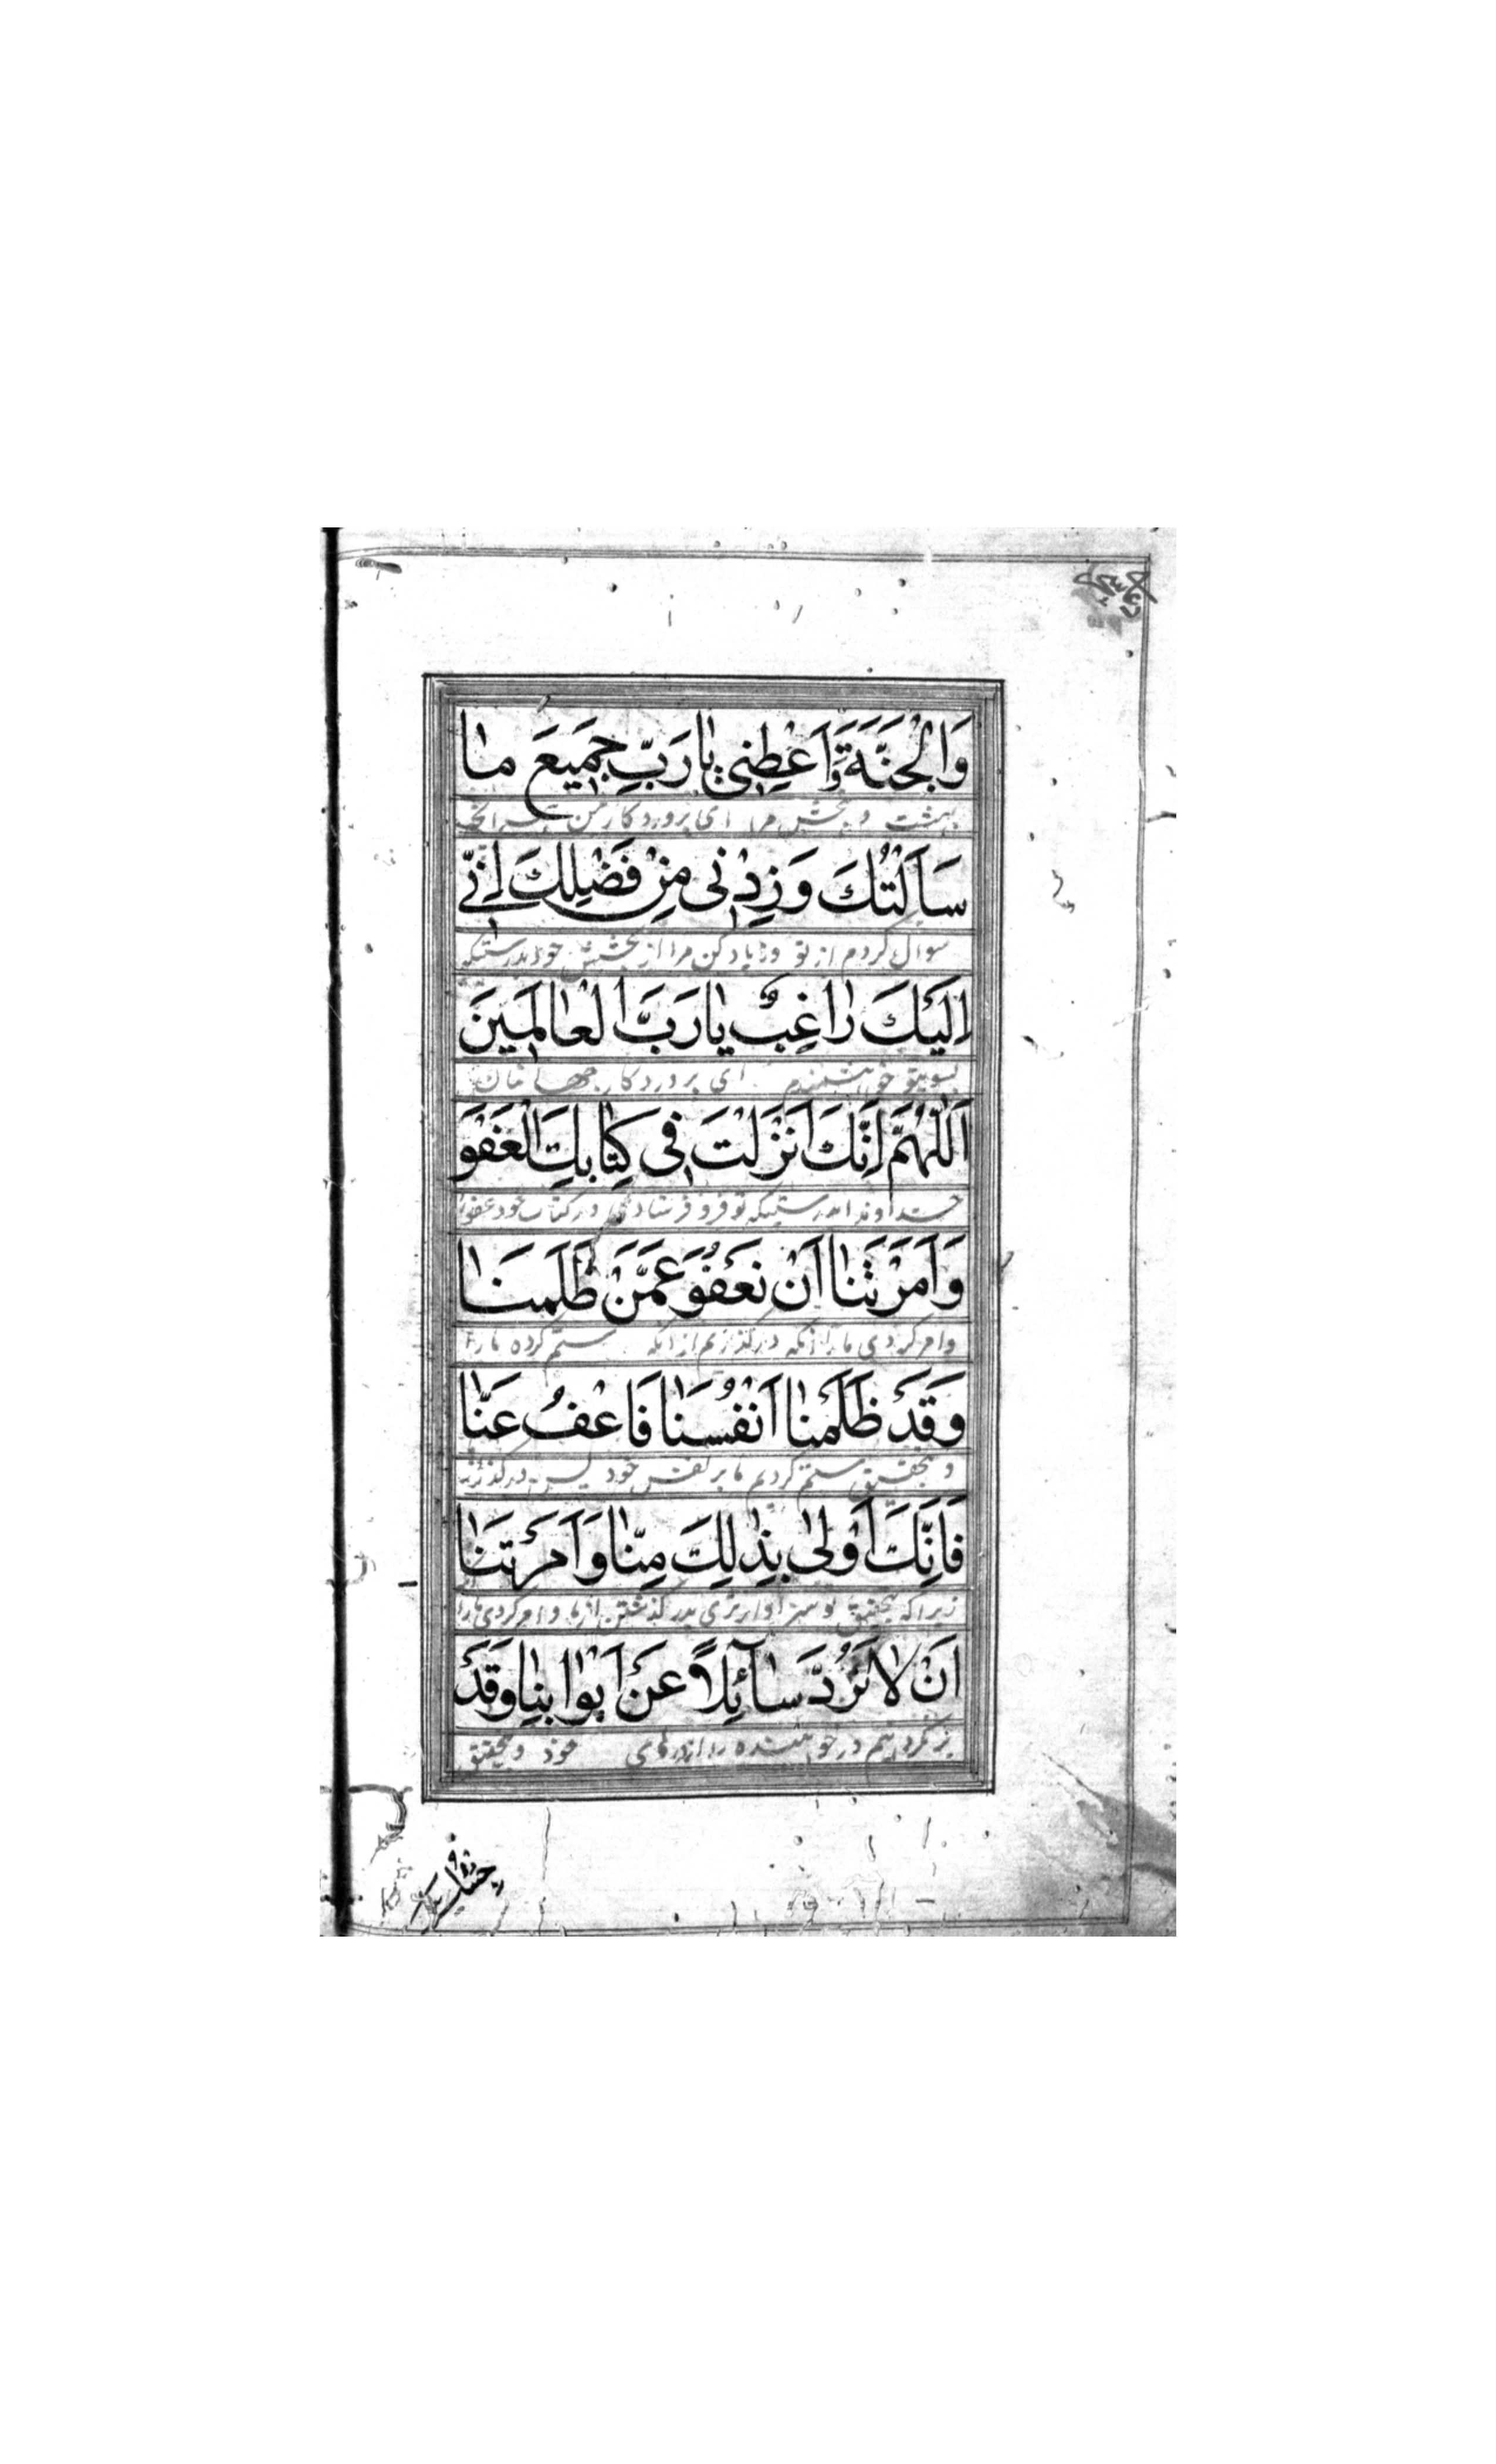 وَالْجَنَّةَ وَاَعْطِنى يا رَبِّ جَميعَ ما
بهشت و بخش مرا ای پروردکار من
سَاَلْتُكَ وَزِدْنى مِنْ فَضْلِكَ اِنّى
سوال کردم از تو و زیاد کن مرا از بخشش خود بدرستیکه
اِلَيْكَ راغِبٌ يا رَبَّ الْعالَمينَ
بسویتو خواهشمندم ای پروردکار جهانیان
اَللّهُمَّ اِنَّكَ اَنْزَلْتَ فى كِتابِكَ الْعَفْوَ
خداوندا بدرستیکه تو فرو فرستادهٔ در کتاب خود عفورا
وَاَمَرْتَنا اَنْ نَعْفُوَ عَمَّنْ ظَلَمَنا
و امر کردی ما را آنکه در کذریم از آنکه ستم کرده ما را
وَقَدْ ظَلَمْنا اَنْفُسَنا فَاعْفُ عَنّا
و بتحقیق ستم کردیم ما بر نفس خود پس در کذر
فَاِنَّكَ اَوْلى بِذلِكَ مِنّا وَاَمَرْتَنا
زیرا که بتحقیق تو سزاوارتری بدر کذشتن از ما و امر کردی ما را
اَنْ لا نَرُدَّ سآئِلاً عَنْ اَبْوابِنا وَقَدْ
خواهنده را از درهای خود و بتحقیق